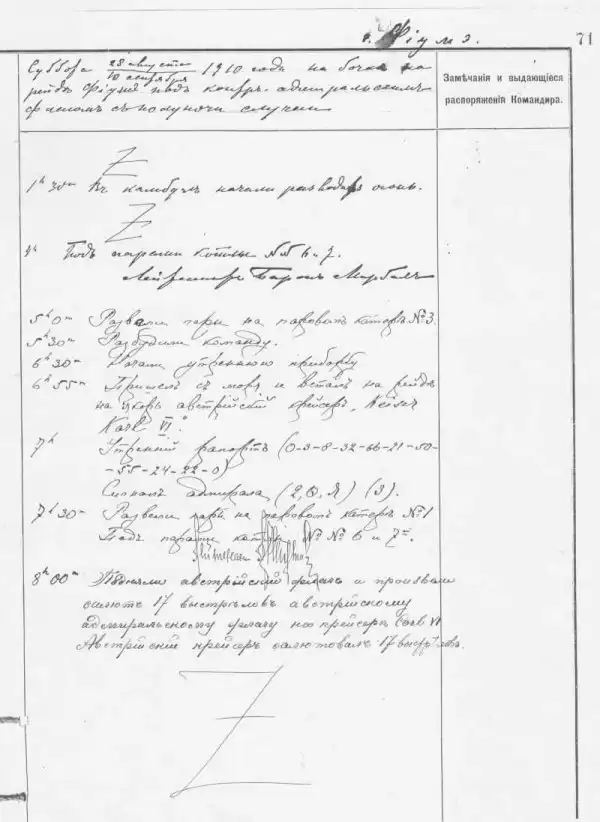 г. Фіумэ.
71
Суббота 28 августа / 10 сентября 1910 года на бочке на
рейдѣ Фіуме подъ контръ-адмиральскимъ
флагомъ съ полуночи случаи
Замѣчанія и выдающіеся
распоряженія Командира.
Z
1ʰ 30ᵐ Въ камбузѣ начали разводить огонь.
Z
4ʰ Подъ парами котлы №№ 6 и 7.
Лейтенантъ Баронъ
5ʰ 0ᵐ Развели пары на паровомъ катерѣ №3.
5ʰ 30ᵐ Разбудили команду.
6ʰ 30ᵐ Начали утреннюю приборку
6ʰ 55ᵐ Пришелъ съ моря и всталъ на рейдѣ
на якорь австрійскій крейсеръ „Keiser
Karl VI“.
7ʰ Утренній рапортъ (0-3-8-32-66-21-50-
-55-24-22-0)
Сигналъ адмирала (2, О, Я) (3).
7ʰ 30ᵐ Развели пары на паровомъ катерѣ №1
Подъ парами котлы №№ 6 и 7.
8ʰ 00ᵐ Подняли австрійскій флагъ и произвели
салютъ 17 выстрѣловъ австрійскому
адмиральскому флагу на крейсерѣ Carl VI
Австрійскій крейсеръ салютовалъ 17 выстрѣловъ.
Z